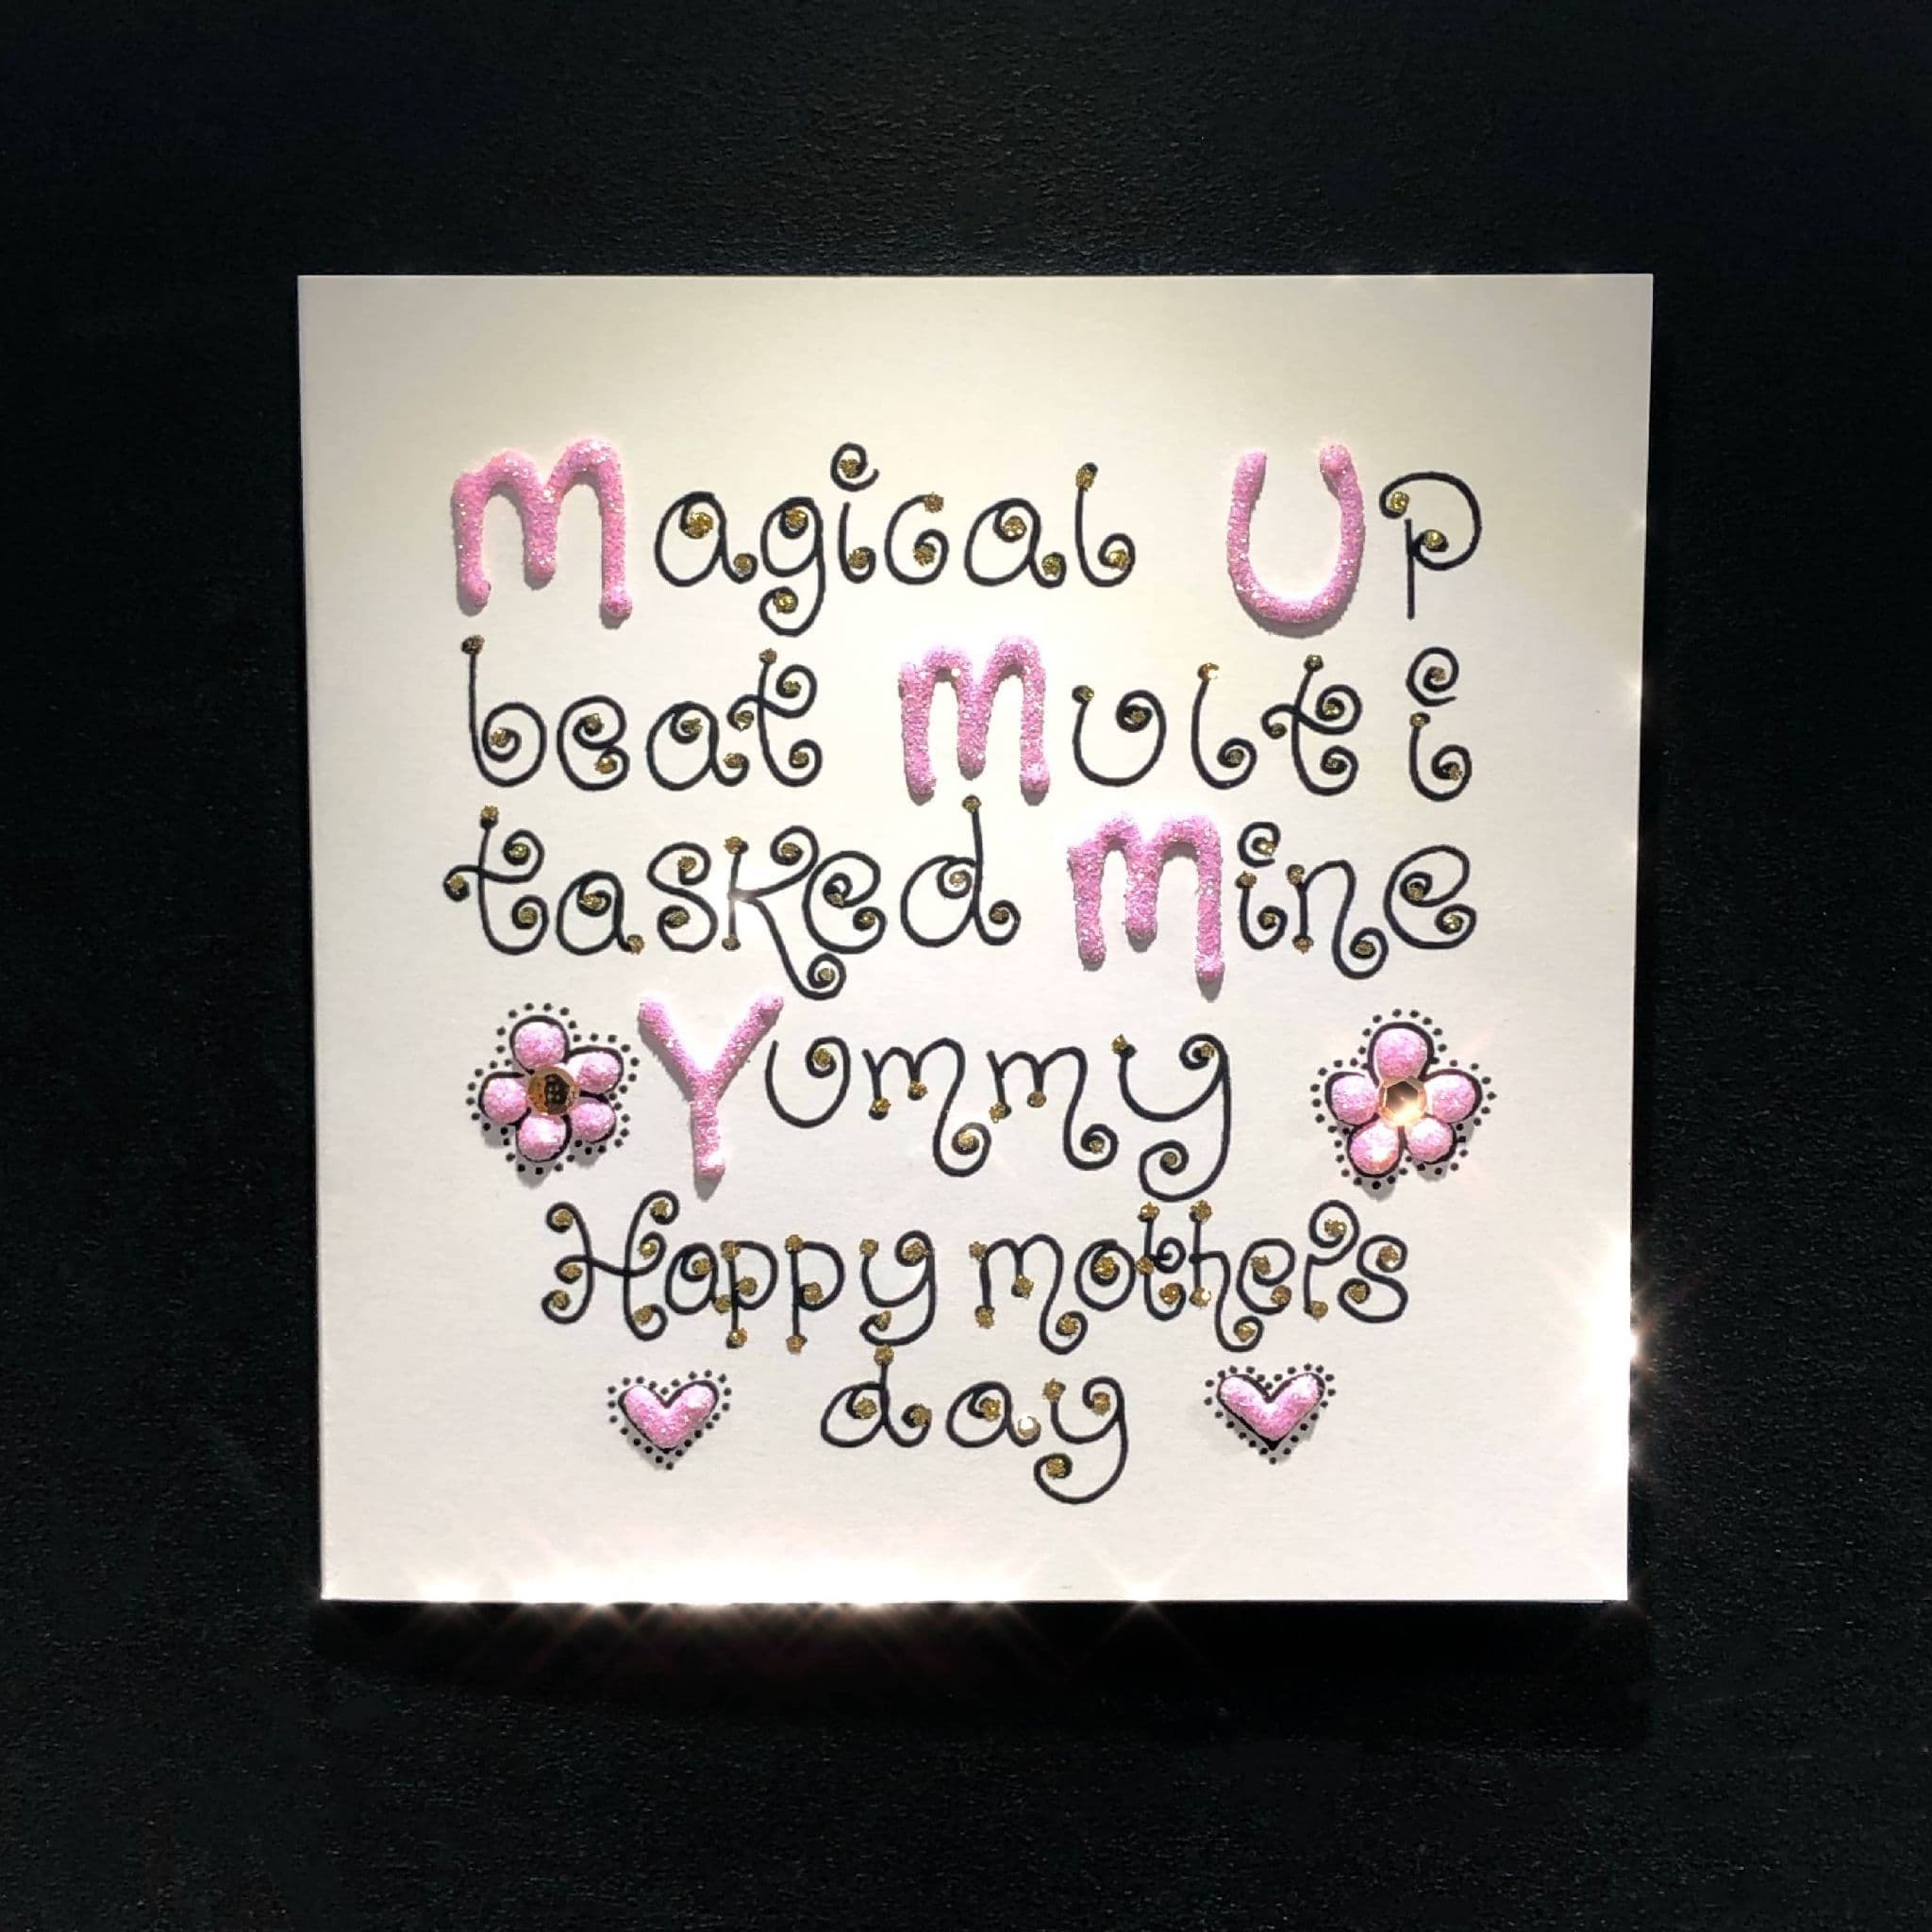 Magical Up
beat Multi
tasked Mine
Yummy
Happy mothers
day